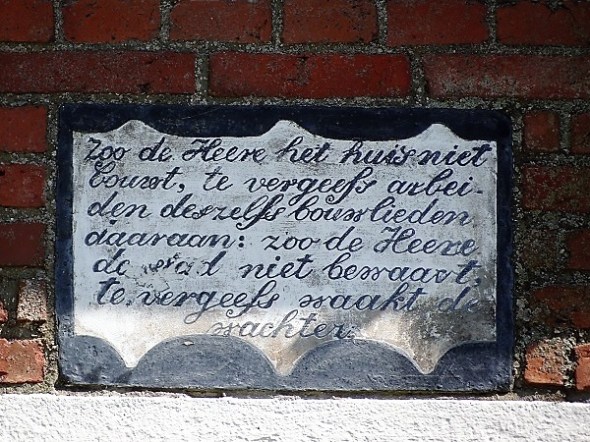 Zoo de Heere het huis niet
bouwt, te vergeefs arbei-
den deszelfs bouwlieden
daaraan: zoo de Heere
de stad niet bewaart,
te vergeefs waakt de
wachter.